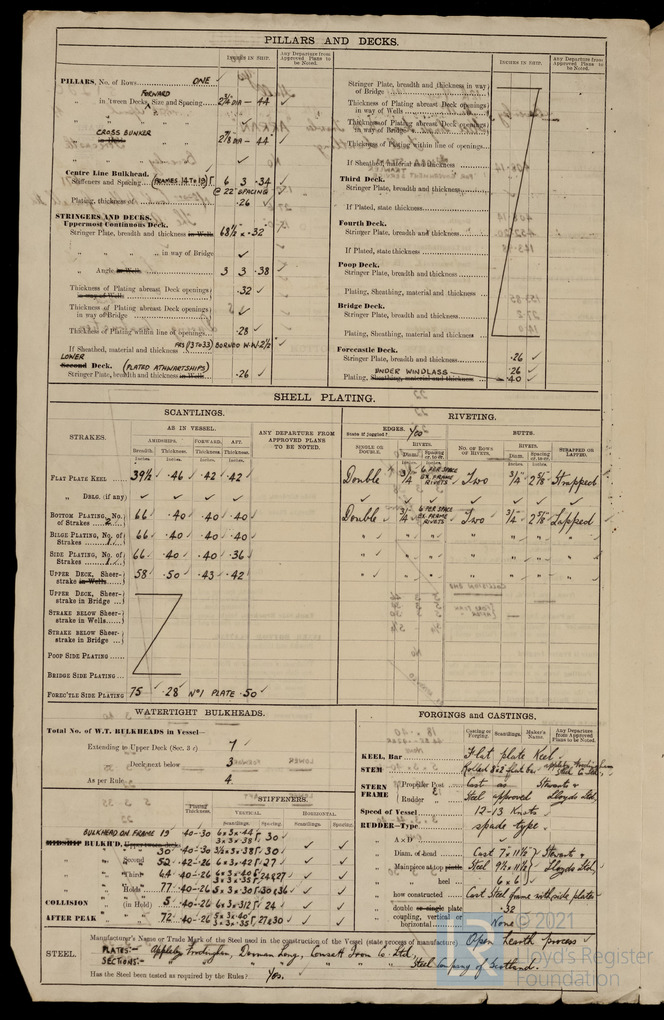 PILLARS AND DECKS.
INCHES IN SHIP.
Any Departure from Approved Plans to be Noted.
PILLARS, No. of Rows ONE ✓
FORWARD
„ in 'tween Decks, Size and Spacing 2¾ DIA — 44 ✓
CROSS BUNKER
„ „ 2⅞ DIA — 44 ✓
Centre Line Bulkhead.
Stiffeners and Spacing (FRAMES 14 TO 19) 6 3 .34 ✓
@ 22" SPACING
Plating, thickness of .26 ✓
STRINGERS AND DECKS.
Uppermost Continuous Deck.
Stringer Plate, breadth and thickness in Wells 68½ x .32 ✓
„ „ „ „ in way of Bridge ✓
„ Angle in Wells 3 3 .38 ✓
Thickness of Plating abreast Deck openings in way of Wells .32 ✓
Thickness of Plating abreast Deck openings in way of Bridge ✓
Thickness of Plating within line of openings .28 ✓
If Sheathed, material and thickness FRS (13 TO 33) BORNEO W.W 2½"
LOWER
Second Deck. (PLATED ATHWARTSHIPS)
Stringer Plate, breadth and thickness in Wells .26 ✓
INCHES IN SHIP.
Any Departure from Approved Plans to be Noted.
Stringer Plate, breadth and thickness in way of Bridge
Thickness of Plating abreast Deck openings in way of Wells
Thickness of Plating abreast Deck openings in way of Bridge
Thickness of Plating within line of openings
If Sheathed, material and thickness
Third Deck.
Stringer Plate, breadth and thickness
If Plated, state thickness
Fourth Deck.
Stringer Plate, breadth and thickness
If Plated, state thickness
Poop Deck.
Stringer Plate, breadth and thickness
Plating, Sheathing, material and thickness
Bridge Deck.
Stringer Plate, breadth and thickness
Plating, Sheathing, material and thickness
Forecastle Deck.
Stringer Plate, breadth and thickness .26 ✓
UNDER WINDLASS .26 ✓
Plating, Sheathing, material and thickness .40 ✓
SHELL PLATING.
SCANTLINGS.
RIVETING.
STRAKES.
AS IN VESSEL.
ANY DEPARTURE FROM APPROVED PLANS TO BE NOTED.
EDGES. State if joggled? Yes
BUTTS.
AMIDSHIPS. FORWARD. AFT.
Breadth. Thickness. Thickness. Thickness.
SINGLE OR DOUBLE.
RIVETS. Diam. Spacing cr. to cr.
No. OF ROWS OF RIVETS.
RIVETS. Diam. Spacing cr. to cr.
STRAPPED OR LAPPED.
FLAT PLATE KEEL 39½ .46 .42 .42 Double ¾ 6 PER SPACE EX FRAME RIVETS Two ¾ 2⅝ Strapped
„ DBLG. (if any) ✓ ✓ ✓ ✓
BOTTOM PLATING, No. of Strakes 2 66 .40 .40 .40 Double ¾ 6 PER SPACE EX FRAME RIVETS Two ¾ 2⅝ Lapped
BILGE PLATING, No. of Strakes 1 66 .40 .40 .40
SIDE PLATING, No. of Strakes 1 66 .40 .40 .36
UPPER DECK, Sheerstrake in Wells 58 .50 .43 .42
UPPER DECK, Sheerstrake in Bridge
STRAKE BELOW Sheerstrake in Wells
STRAKE BELOW Sheerstrake in Bridge
POOP SIDE PLATING
BRIDGE SIDE PLATING
FOREC'TLE SIDE PLATING 75 .28 No 1 PLATE .50 ✓
WATERTIGHT BULKHEADS.
Total No. of W.T. BULKHEADS in Vessel—
Extending to Upper Deck (Sec. 3 c) 1 ✓
„ Deck next below 3
As per Rule 4
Plating Thickness.
STIFFENERS.
VERTICAL. HORIZONTAL.
Scantlings. Spacing. Scantlings. Spacing.
BULKHEAD ON FRAME 19 .40-.30 30
MIDSHIP BULKH'D, 30 .40-.30 30
„ „ Second 52 .42-.26 6 x 3 x .42 27
„ „ Third 64 .40-.26 24 & 27
„ „ Holds 77 .40-.26
COLLISION „ (in Hold) 5 .40-.26 24
AFTER PEAK „ 72 .40-.26 27 & 30
FORGINGS and CASTINGS.
Casting or Forging. Scantlings. Maker's Name. Any Departure from Approved Plans to be Noted.
KEEL, Bar Flat plate Keel.
STEM Rolled 8 x 2 flat bar Appleby Frodingham Steel Co Ltd.
STERN FRAME { Propeller Post Cast as Stewarts &
Rudder „ Steel approved Lloyds Ltd.
Speed of Vessel 12-13 Knots ✓
RUDDER—Type spade type.
„ A x D ✓
„ Diam. of head Cast 7" x 11½" Stewarts &
„ Mainpiece at top Steel 9½ x 11½ Lloyds Ltd.
„ „ heel 6 x 6
„ how constructed Cast Steel frame with side plates
„ double or single plate .32
„ coupling, vertical or horizontal None
STEEL.
Manufacturer's Name or Trade Mark of the Steel used in the construction of the Vessel (state process of manufacture) Open hearth process ✓
PLATES:- Appleby Frodingham, Dorman Long, Consett Iron Co. Ltd.
SECTIONS:- „ „ „ „ Steel Company of Scotland.
Has the Steel been tested as required by the Rules? Yes.
© 2021
Lloyd's Register
Foundation